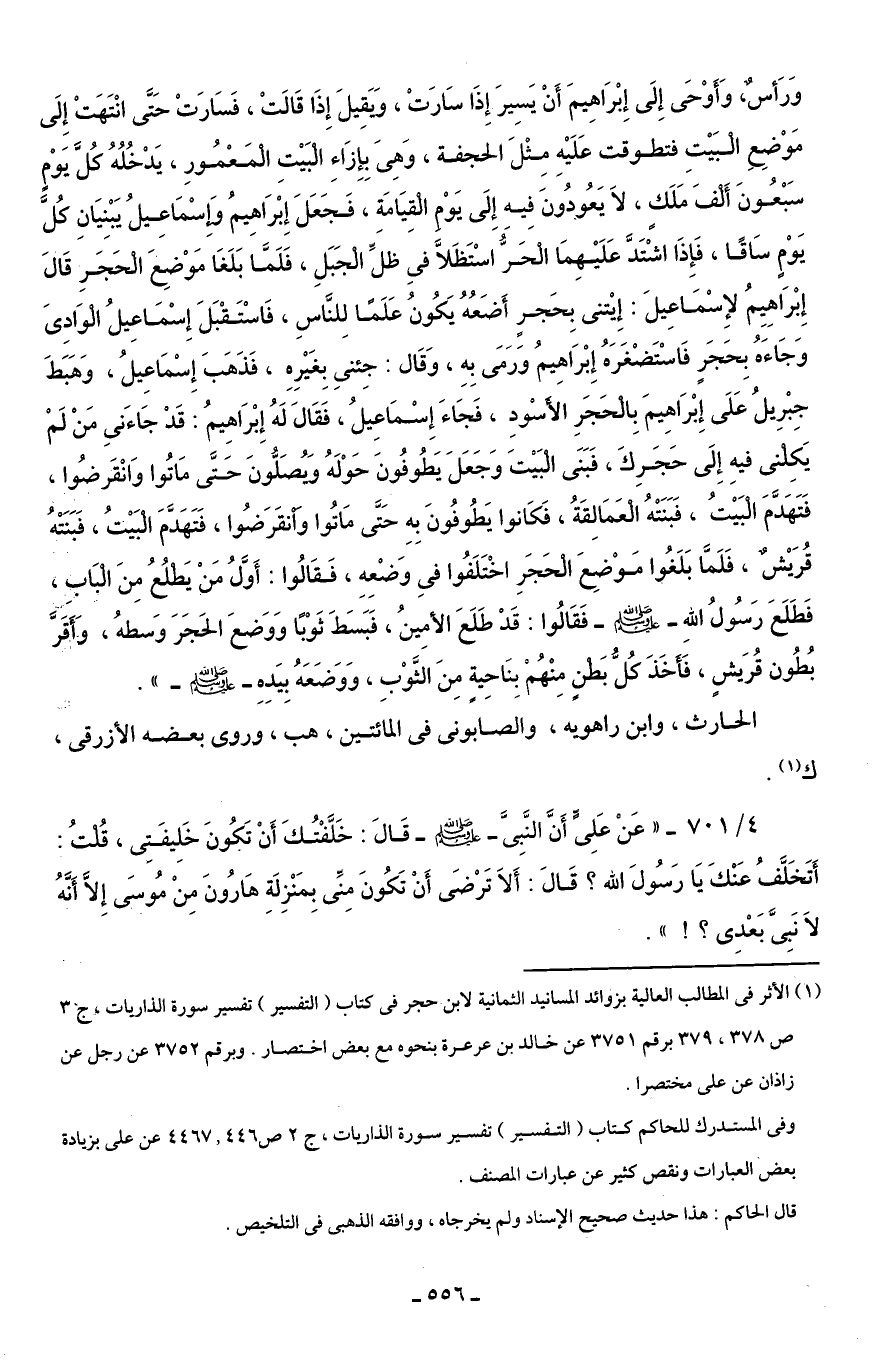 وَرَأسٌ، وَأَوْحَى إِلَى إِبْرَاهِيمَ أَنْ يَسِيرَ إِذَا سَارَتْ ، وَيَقِيلَ إِذَا قَالَتْ ، فَسَارَتْ حَتَّى انْتَهَتْ إِلَى
مَوْضِعِ الْبَيْتِ فتطوقت عَلَيْهِ مِثْلَ الحجفة ، وَهِىَ بِإِزَاءِ الْبَيْتِ الْمَعْمُورِ ، يَدْخُلُهُ كُلَّ يَوْمٍ
سَبْعُونَ أَلْفَ مَلَكٍ ، لاَ يَعُودُونَ فِيهِ إِلَى يَوْمِ الْقِيَامَةِ ، فَجَعَلَ إِبْرَاهِيمُ وَإِسْمَاعِيلُ يَبْنِيَانِ كُلَّ
يَوْمٍ سَاقًا ، فَإِذَا اشْتَدَّ عَلَيْهِمَا الْحَرُّ اسْتَظَلاَّ فِى ظلِّ الْجَبَلِ ، فَلَمَّا بَلَغَا مَوْضِعَ الْحَجَرِ قَالَ
إِبْرَاهِيمُ لإِسْمَاعِيلَ : إِيْتِنِى بِحَجرٍ أَضَعُهُ يَكُونُ عَلَمًا لِلنَّاسِ ، فَاسْتَقْبَلَ إِسْمَاعِيلُ الْوَادِىَ
وَجَاءَهُ بِحَجَرٍ فَاسْتَصْغَرَهُ إِبْرَاهِيمُ وَرَمَى بِهِ ، وَقَال : جِئنِى بِغَيْرِهِ ، فَذَهَبَ إِسْمَاعِيلُ ، وَهَبَطَ
جِبْرِيلُ عَلَى إِبْرَاهِيمَ بِالْحَجَرِ الأَسْودِ ، فَجَاءَ إِسْمَاعِيلُ ، فَقَالَ لَهُ إِبْرَاهِيمُ : قَدْ جَاءَنِى مَنْ لَمْ
يَكِلْنِى فِيهِ إِلَى حَجَرِكَ ، فَبَنَى الْبَيْتَ وَجَعَلَ يَطُوفُونَ حَوْلَهُ وَيُصَلُّونَ حَتَّى مَاتُوا وَانْقَرضُوا ،
فَتَهَدَّمَ الْبَيْتُ ، فَبَنَتْهُ الْعَمَالِقَةُ ، فَكَانُوا يَطُوفُونَ بِهِ حَتَّى مَاتُوا وَانْقَرَضُوا ، فَتَهَدَّمَ الْبَيْتُ ، فَبَنَتْهُ
قُرَيْشٌ ، فَلَمَّا بَلَغُوا مَوْضِعَ الْحَجَرِ اخْتَلَفُوا فِى وَضْعِهِ ، فَقَالُوا : أَوَّلُ مَنْ يَطْلُعُ مِنَ الْبَابِ ،
فَطَلَعَ رَسُولُ اللهِ ـ ﷺ ـ فَقَالُوا : قَدْ طَلَعَ الأَمِينُ ، فَبَسَطَ ثَوبًا وَوَضعَ الحَجَرَ وَسطهُ ، وَأَقَرَّ
بُطُون قُرَيشٍ ، فَأَخَذَ كُلُّ بَطْنٍ مِنْهُمْ بِنَاحِيةٍ مِنَ الثَّوْبِ ، وَوَضَعَهُ بِيَدِهِ ـ ﷺ ـ » .
الحارث ، وابن راهويه ، والصابونى فى المائتين ، هب ، وروى بعضه الأزرقى ،
ك(١) .
٤/ ٧٠١ ـ « عَنْ عَلِىٍّ أَنَّ النَّبِىَّ ـ ﷺ ـ قَالَ : خَلَّفْتُكَ أَنْ تَكُونَ خَلِيفَتِى ، قُلْتُ :
أَتَخَلَّفُ عَنْكَ يَا رَسُولَ اللهِ ؟ قَالَ : أَلاَ تَرْضَى أَنْ تَكُونَ مِنِّى بِمَنْزِلَةِ هَارُونَ مِنْ مُوسَى إِلاَّ أَنَّهُ
لاَ نَبِىَّ بَعْدِى ؟ ! » .
(١) الأثر فى المطالب العالية بزوائد المسانيد الثمانية لابن حجر فى كتاب ( التفسير ) تفسير سورة الذاريات ، ج ٣
ص ٣٧٨ ، ٣٧٩ برقم ٣٧٥١ عن خالد بن عرعرة بنحوه مع بعض اختصار . وبرقم ٣٧٥٢ عن رجل عن
زاذان عن على مختصرا .
وفى المستدرك للحاكم كتاب ( التفسير ) تفسير سورة الذاريات ، ج ٢ ص٤٤٦ , ٤٤٦٧ عن على بزيادة
بعض العبارات ونقص كثير عن عبارات المصنف .
قال الحاكم : هذا حديث صحيح الإسناد ولم يخرجاه ، ووافقه الذهبى فى التلخيص .
ـ ٥٥٦ ـ